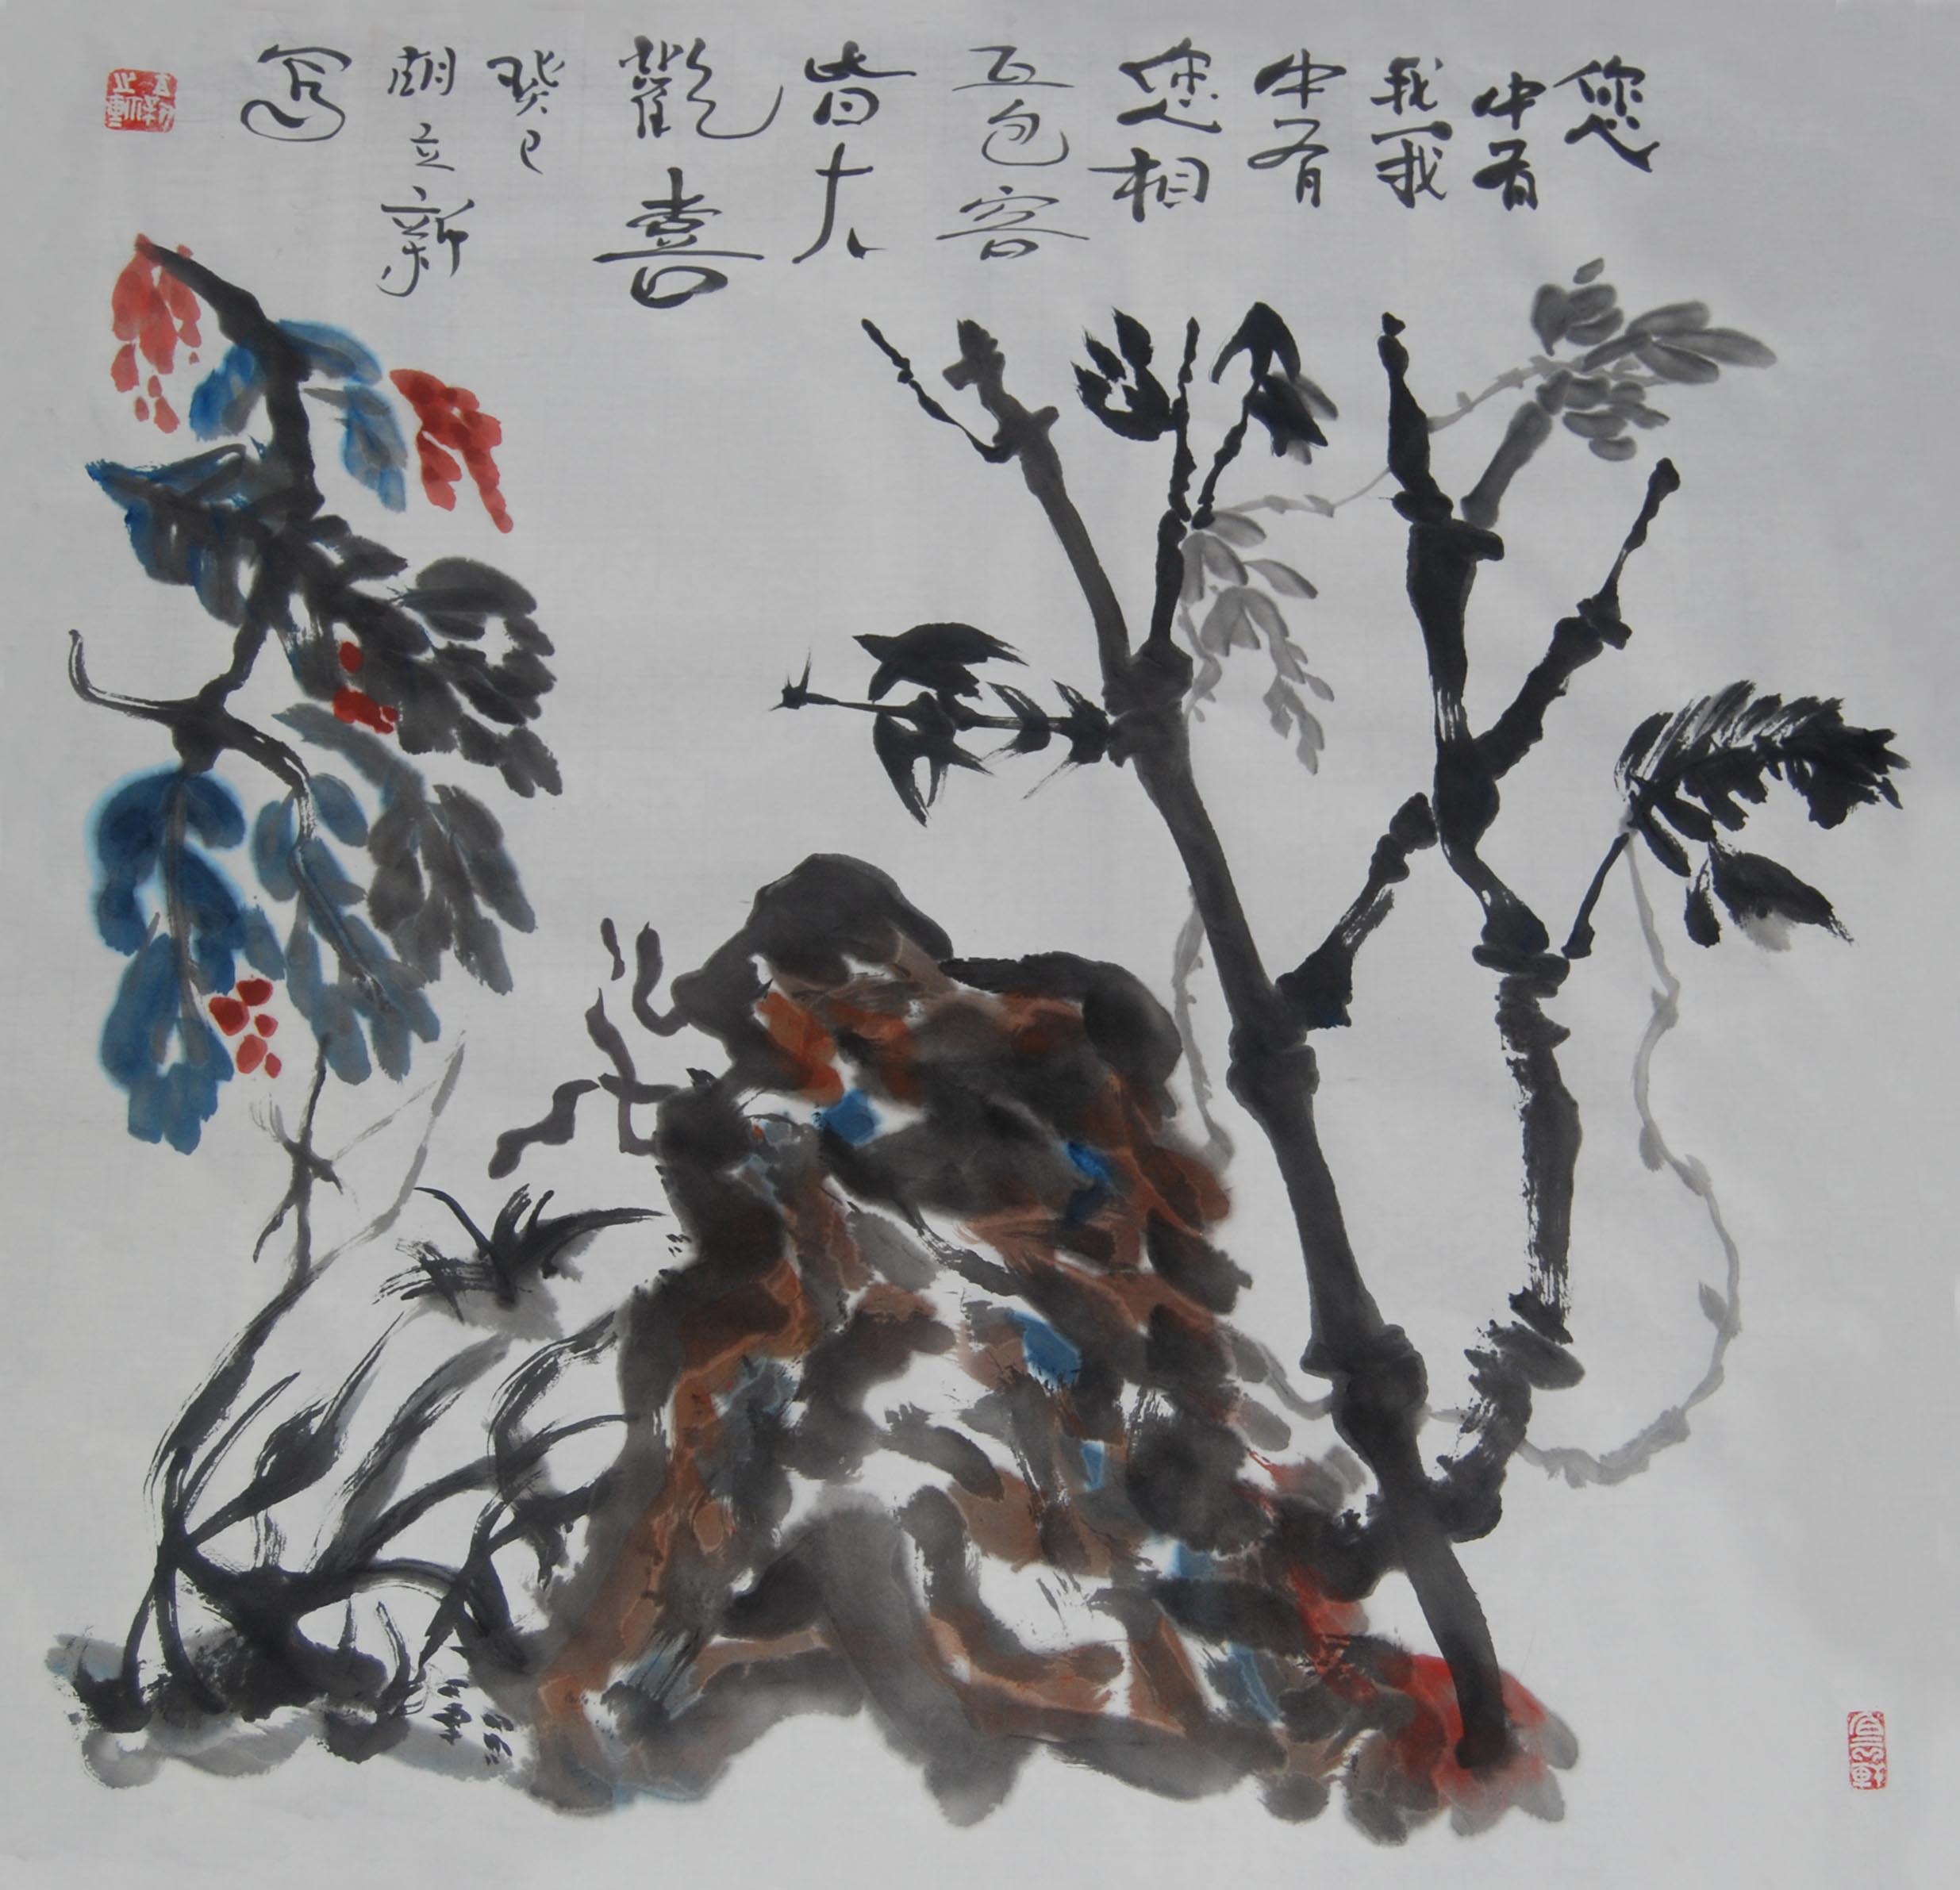 您
中有
我我
中有
您相
互包容
皆大
歡喜
癸巳
胡立新
寫